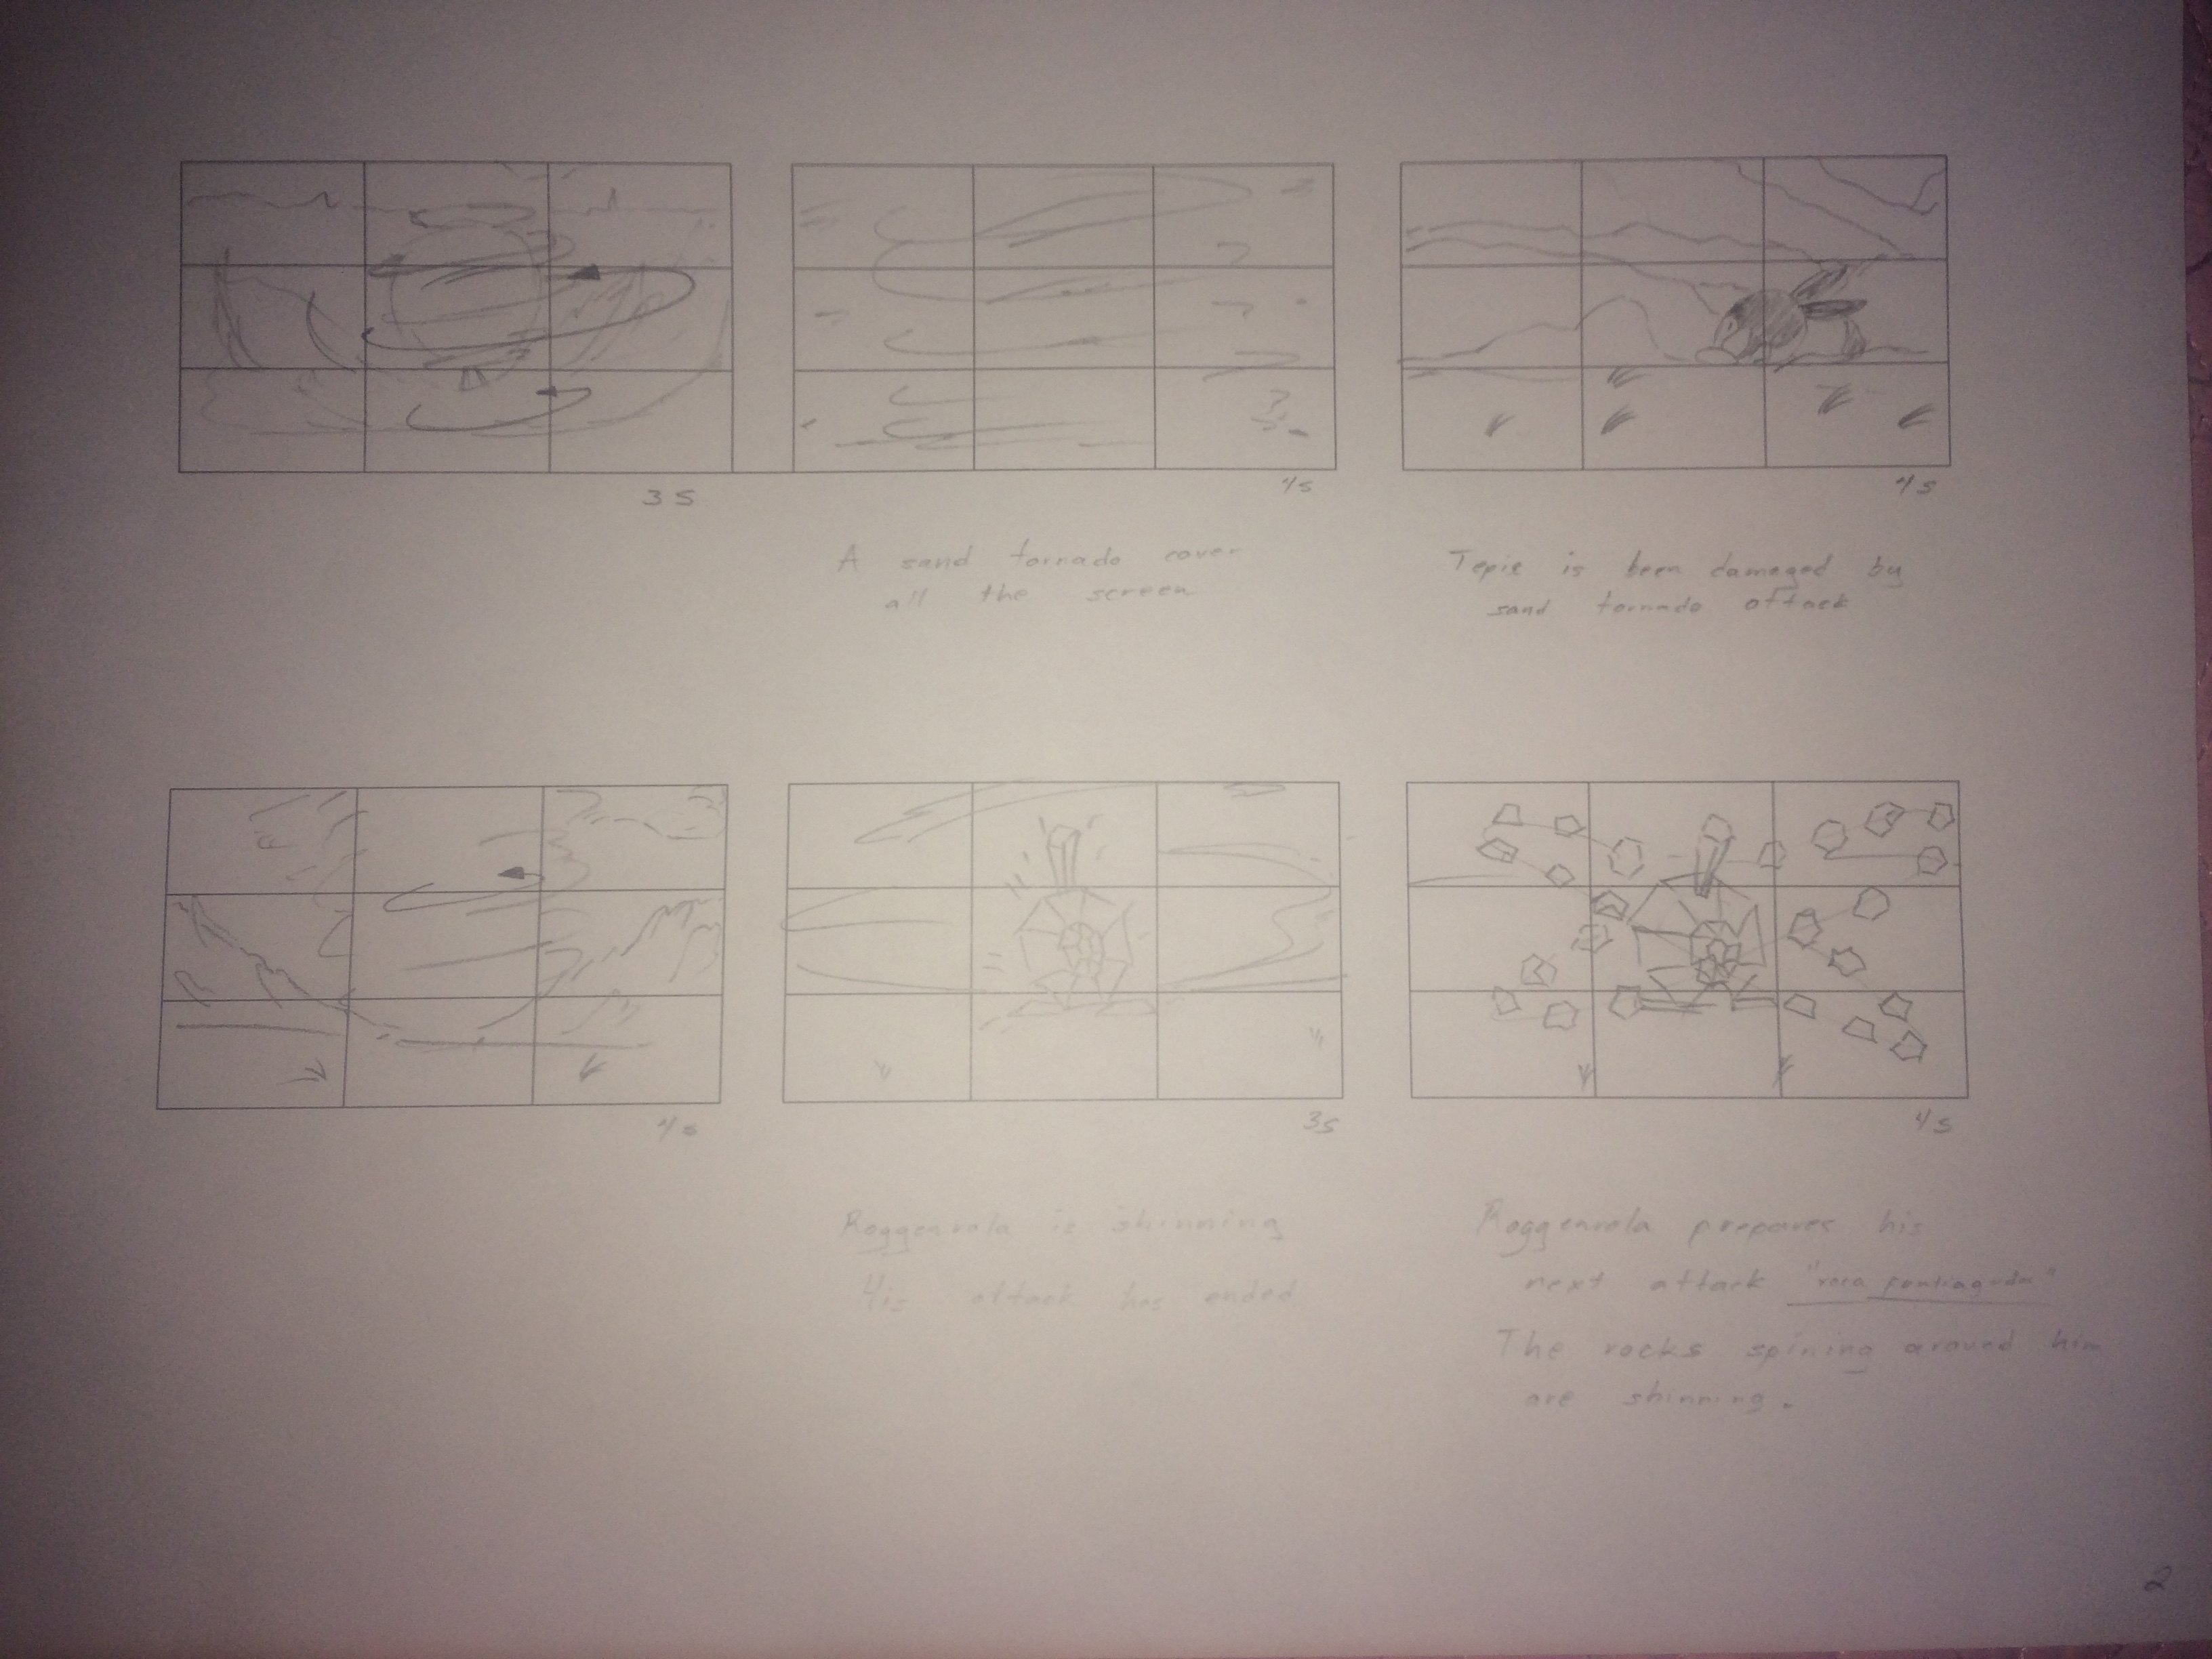 3s
4s
4s
A sand tornado cover
all the screen
Tepig is been damaged by
sand tornado attack
4s
3s
4s
Roggenrola is shinning
His attack has ended
Roggenrola prepares his
next attack "roca puntiaguda"
The rocks spining around him
are shinning.
2